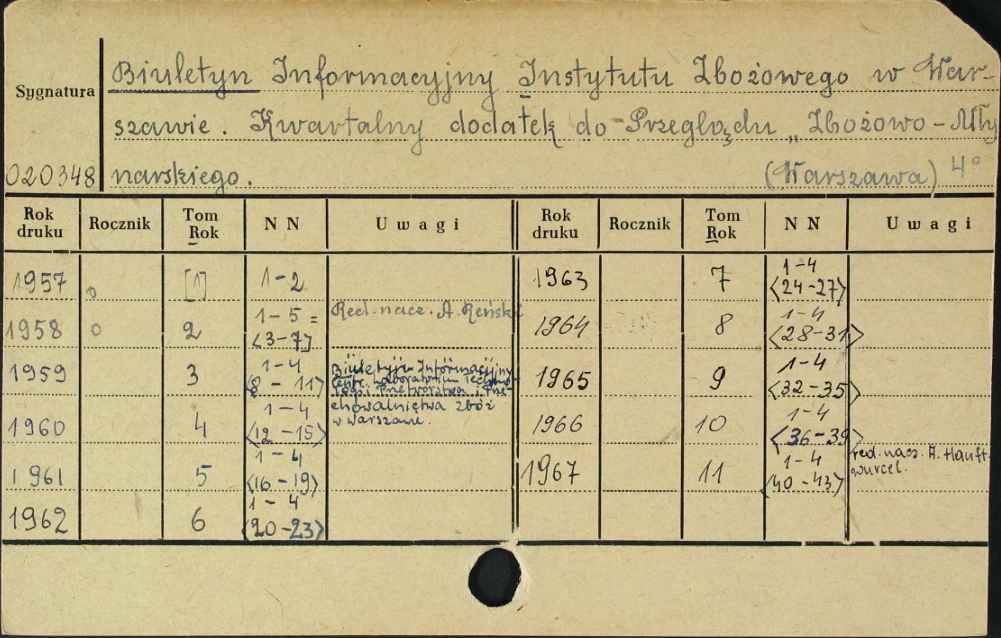 Sygnatura
Biuletyn Informacyjny Instytutu Zbożowego w War-
szawie. Kwartalny dodatek do Przeglądu „Zbożowo-Mły
020348 narskiego. (Warszawa) 4°
Rok druku Rocznik Tom Rok NN Uwagi Rok druku Rocznik Tom Rok NN Uwagi
1957 [1] 1-2 1963 7 1-4 <24-27>
1958 2 1-5 = <3-7] Red. nacz. A. Reński 1964 8 1-4 <28-31>
1959 3 1-4 <8-11> Biuletyn Informacyjny Centr. Laboratorium Techno-logii Przetwórstwa i Prze-chowalnictwa zbóż w Warszawie. 1965 9 1-4 <32-35>
1960 4 1-4 <12-15> 1966 10 1-4 <36-39>
1961 5 1-4 <16-19> 1967 11 1-4 <40-43> red. nacz. A. Hauft-wurcel.
1962 6 1-4 <20-23>